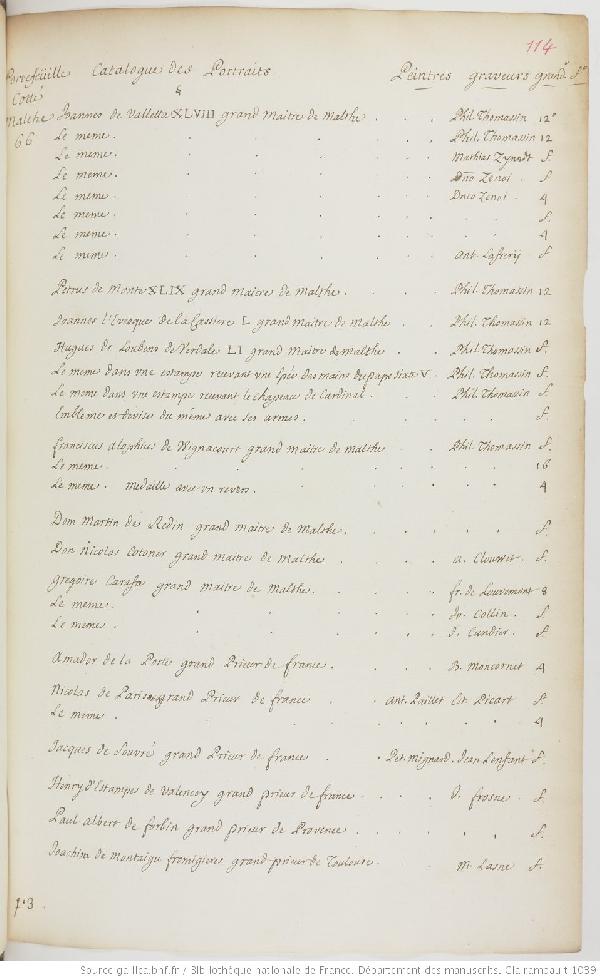 114
Portefeüille Catalogue des Portraits Peintres graveurs grandr. fo
Cotté
Malthe
66
Joannes de Valletta XLVIII grand Maitre de Malthe . Phil. Thomassin 12o
Le meme. Phil. Thomassin 12
Le meme. Mathias Zynndt f.
Le meme. Dno Zenoi . f.
Le meme. Dnco Zenoi . 4
Le meme. f.
Le meme. 4
Le meme. Ant. Lafrerij f.
Petrus de Monte XLIX grand Maitre de Malthe . Phil. Thomassin 12
Joannes l'Eveque de la Cassiere L grand maitre de Malthe . Phil. Thomassin 12
Hugues de Loubens de Verdale LI grand Maitre de malthe . Phil. Thomassin f.
Le meme dans vne estampe recevant vne Epée des mains du pape Sixte V . Phil. Thomassin f.
Le meme dans vne estampe recevant le chapeau de Cardinal . Phil. Thomassin f.
Embleme et devise du meme avec ses armes . f.
franciscus alophius de Wignacourt grand maitre de malthe . Phil. Thomassin f.
Le meme . 16
Le meme . Medaille avec vn revers . 4
Dom Martin de Redin grand maitre de Malthe . f.
Don Nicolas Cotoner grand maitre de Malthe . a. Clouwet . f.
gregoire Carafa grand maitre de Malthe . fr. de Louvemont 8
Le meme . Jo. Collin . f.
Le meme . J. Cundier . f.
Amador de la Porte grand Prieur de france . B. Moncornet 4
Nicolas de Paris grand Prieur de france . Ant. Paillet Et. Picart f.
Le meme . 4
Jacques de Souvré grand Prieur de france . Pet. mignard . Jean Lenfant f.
Henry d'Estampes de Valencey grand prieur de france . J. frosne . f.
Paul Albert de forbin grand prieur de Provence . f.
Joachim de Montaigu fromigieres grand prieur de Toulouse . M. Lasne f.
Source gallica.bnf.fr / Bibliothèque nationale de France. Département des manuscrits. Clairambault 1039